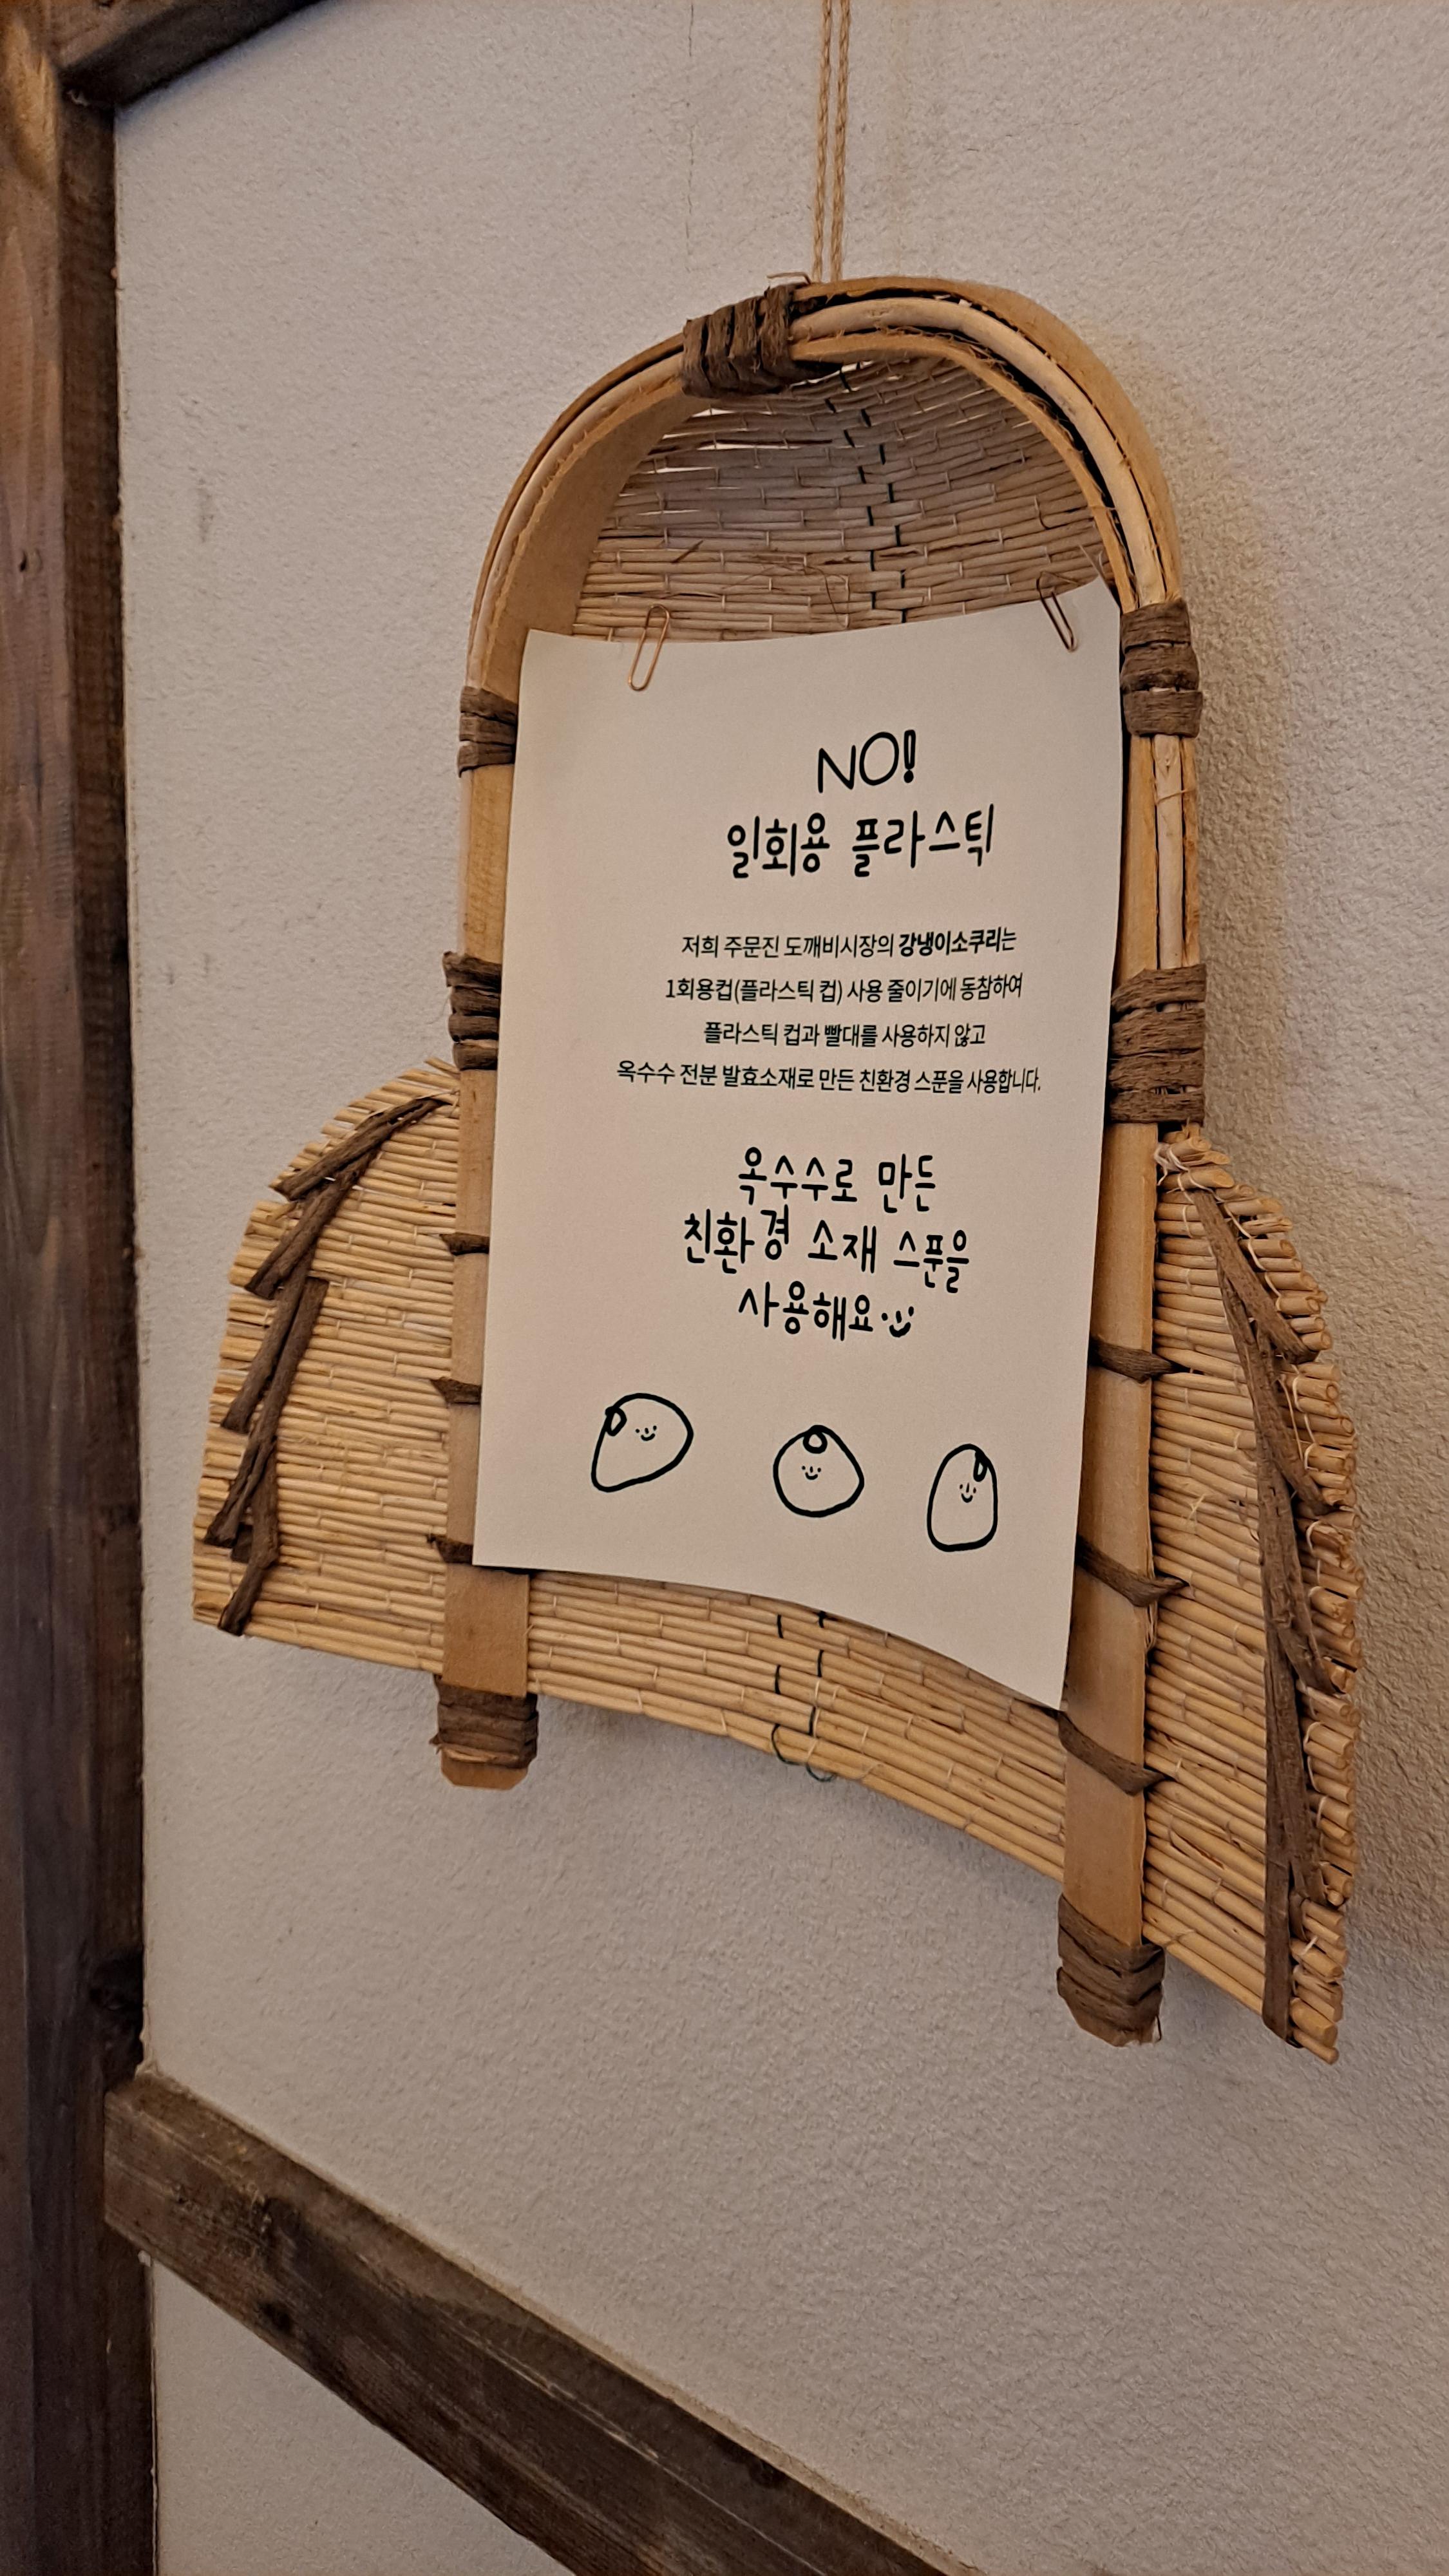 NO!
일회용 플라스틱
저희 주문진 도깨비시장의 강냉이소쿠리는
1회용컵(플라스틱 컵) 사용 줄이기에 동참하여
플라스틱 컵과 빨대를 사용하지 않고
옥수수 전분 발효소재로 만든 친환경 스푼을 사용합니다.
옥수수로 만든
친환경 소재 스푼을
사용해요